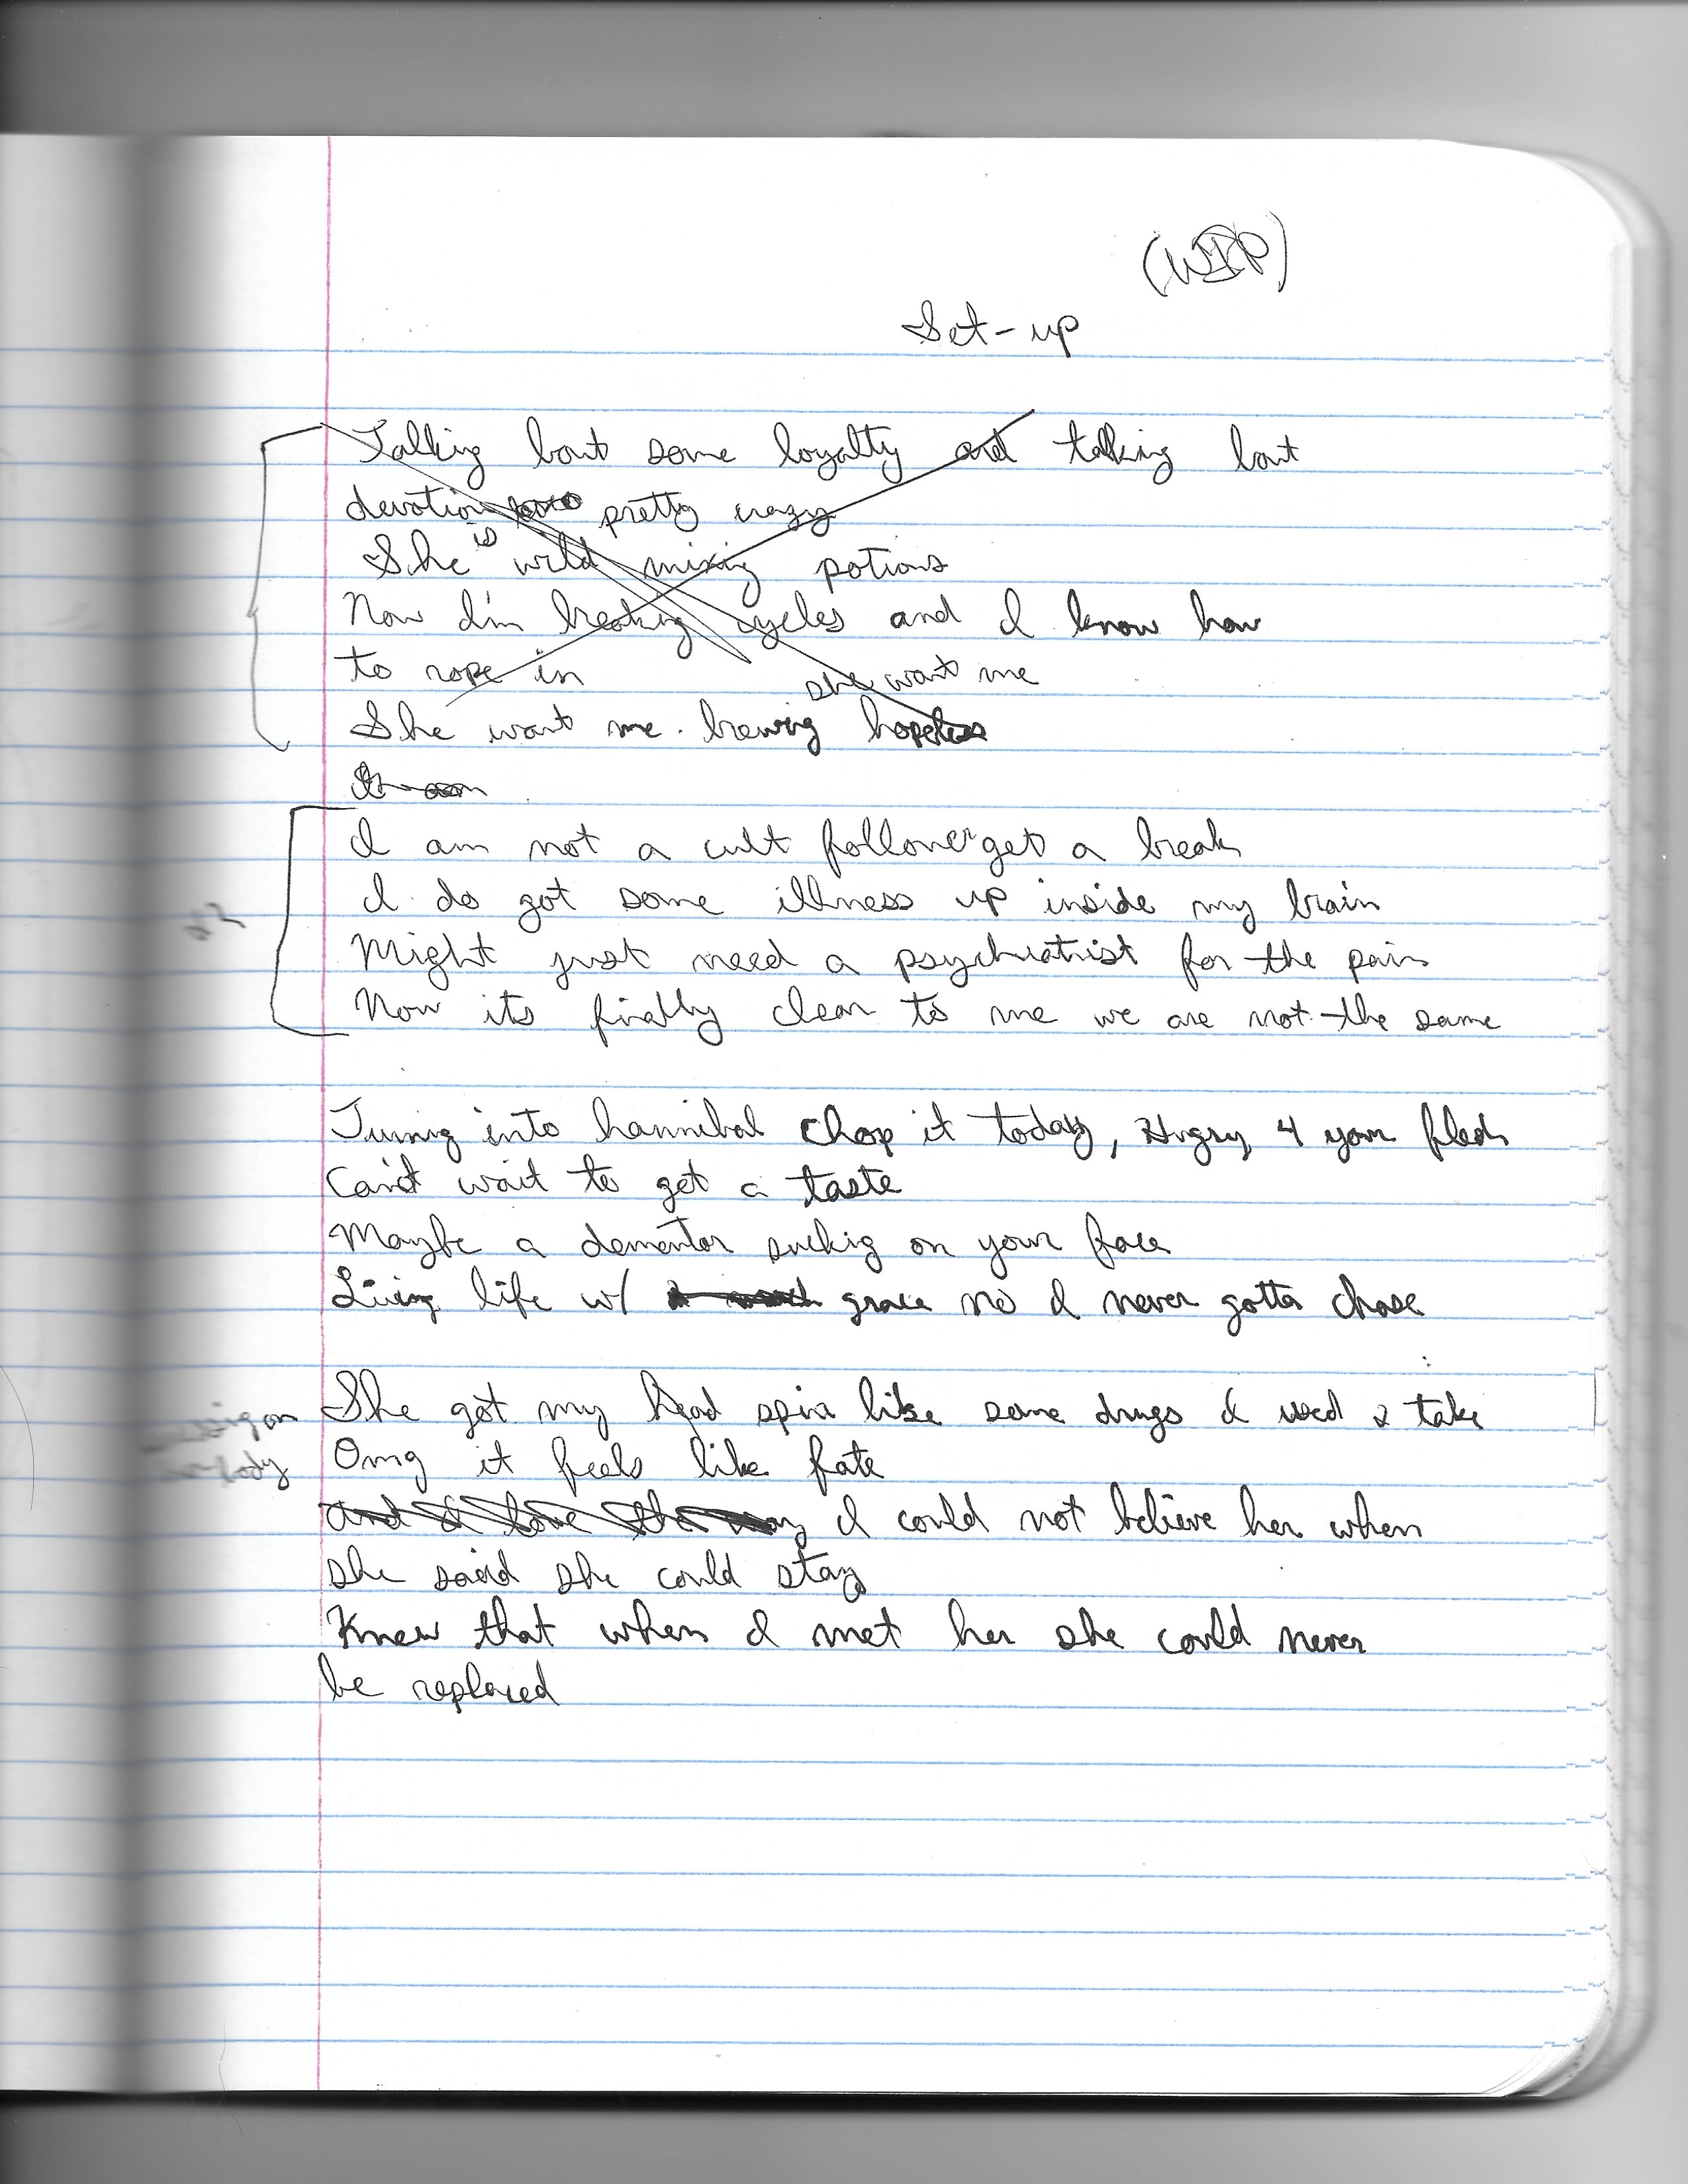 (WIP)
Set-up
Talking bout some loyalty and talking bout
devotion pretty crazy
She is wild mixing potions
Now I'm breaking cycles and I know how
to rope in
she want me
She want me. brewing hopeless
I am not a cult follower get a break
I do got some illness up inside my brain
Might just need a psychiatrist for the pain
Now its finally clear to me we are not the same
Turning into hannibal chop it today, Hugry 4 your flesh
Can't wait to get a taste
Maybe a dementor suckig on your face
Living life w/ grace no I never gotta chase
She got my head spin like some drugs I used 2 take
Omg it feels like fate
and I love the way I could not believe her when
she said she could stay
Knew that when I met her she could never
be replaced
#2
on
body